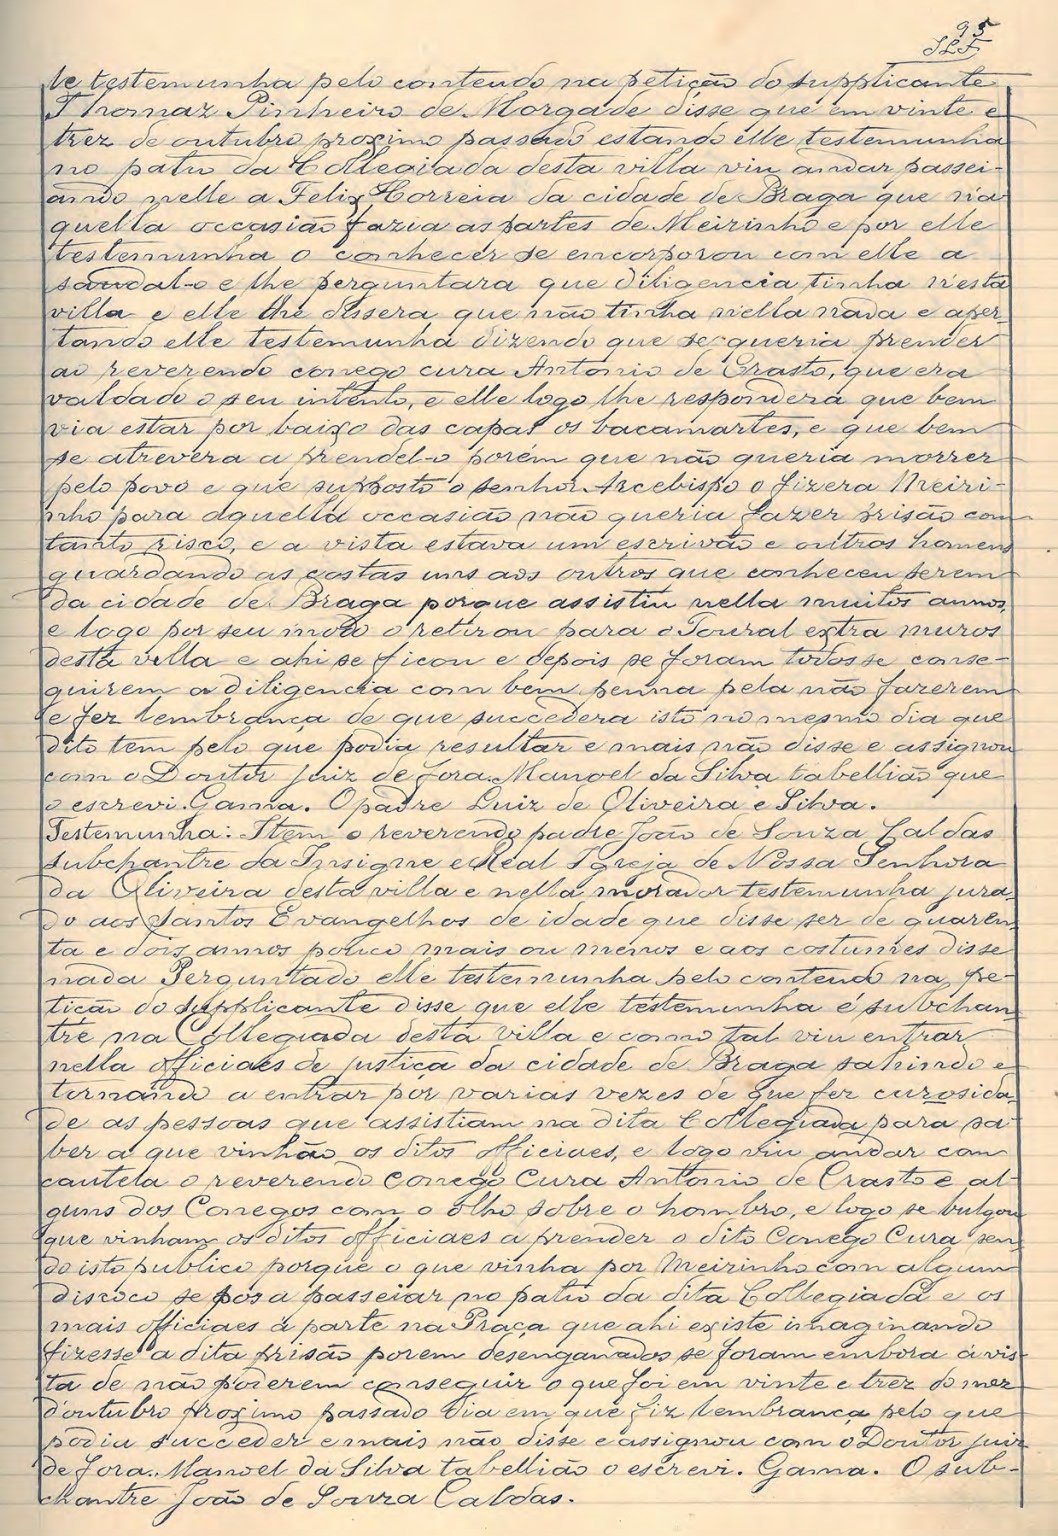 95
te testemunha pelo contendo na petição do supplicante
Thomaz Pinheiro de Morgade disse que em vinte e
trez de outubro proximo passado estando elle testemunha
no patio da Collegiada desta villa viu andar passei-
ando nelle a Felix Correia da cidade de Braga que na
quella occasião fazia as partes de Meirinho e por elle
testemunha o conhecer se encorporou com elle a
saudal-o e lhe perguntara que diligencia tinha n'esta
villa e elle lhe dissera que não tinha nella nada e aper-
tando elle testemunha dizendo que se queria prender
ao reverendo conego cura Antonio de Crasto, que era
baldado o seu intento, e elle logo lhe respondera que bem
via estar por baixo das capas os bacamartes, e que bem
se atrevera a prendel-o porém que não queria morrer
pelo povo e que supposto o senhor Arcebispo o fizera Meiri-
nho para aquella occasião não queria fazer prisão com
tanto risco, e a vista estava um escrivão e outros homens
guardando as costas uns aos outros que conheceu serem
da cidade de Braga porque assistiu nella muitos annos,
e logo por seu modo o retirou para o Toural extra muros
desta villa e ahi se ficou e depois se foram todos se conse-
guirem a diligencia com bem penna pela não fazerem
e fez lembrança de que succedera isto no mesmo dia que
dito tem pelo que podia resultar e mais não disse e assignou
com o Doutor juiz de fora. Manoel da Silva tabellião que
o escrevi. Gama. O padre Luiz de Oliveira e Silva.
Testemunha: Item o reverendo padre João de Souza Caldas
subchantre da Insigne e Real Igreja de Nossa Senhora
da Oliveira desta villa e nella morador testemunha jura-
do aos Santos Evangelhos de idade que disse ser de quaren-
ta e dois annos pouco mais ou menos e aos costumes disse
nada Perguntado elle testemunha pelo contendo na pe-
tição do supplicante disse que elle testemunha é subchan-
tre na Collegiada desta villa e como tal viu entrar
nella officiaes de justiça da cidade de Braga sahindo e
tornando a entrar por varias vezes de que fez curosida-
de as pessoas que assistiam na dita Collegiada para sa-
ber a que vinhão os ditos officiaes, e logo viu andar com
cautela o reverendo Conego Cura Antonio de Crasto e al-
guns dos Conegos com o olho sobre o hombro, e logo se bulgou
que vinham os ditos officiaes a prender o dito Conego Cura sen-
do isto publico porque o que vinha por Meirinho com algum
discoco se pos a passeiar no patio da dita Collegiada e os
mais officiaes á parte na Praça que ahi existe imaginando
fizesse a dita prisão porem desenganados se foram embora á vis-
ta de não poderem conseguir o que foi em vinte e trez do mez
d'outubro proximo passado dia em que fiz lembrança pelo que
podia succeder e mais não disse e assignou com o Doutor juiz
de fora. Manoel da Silva tabellião o escrevi. Gama. O sub-
chantre João de Souza Caldas.